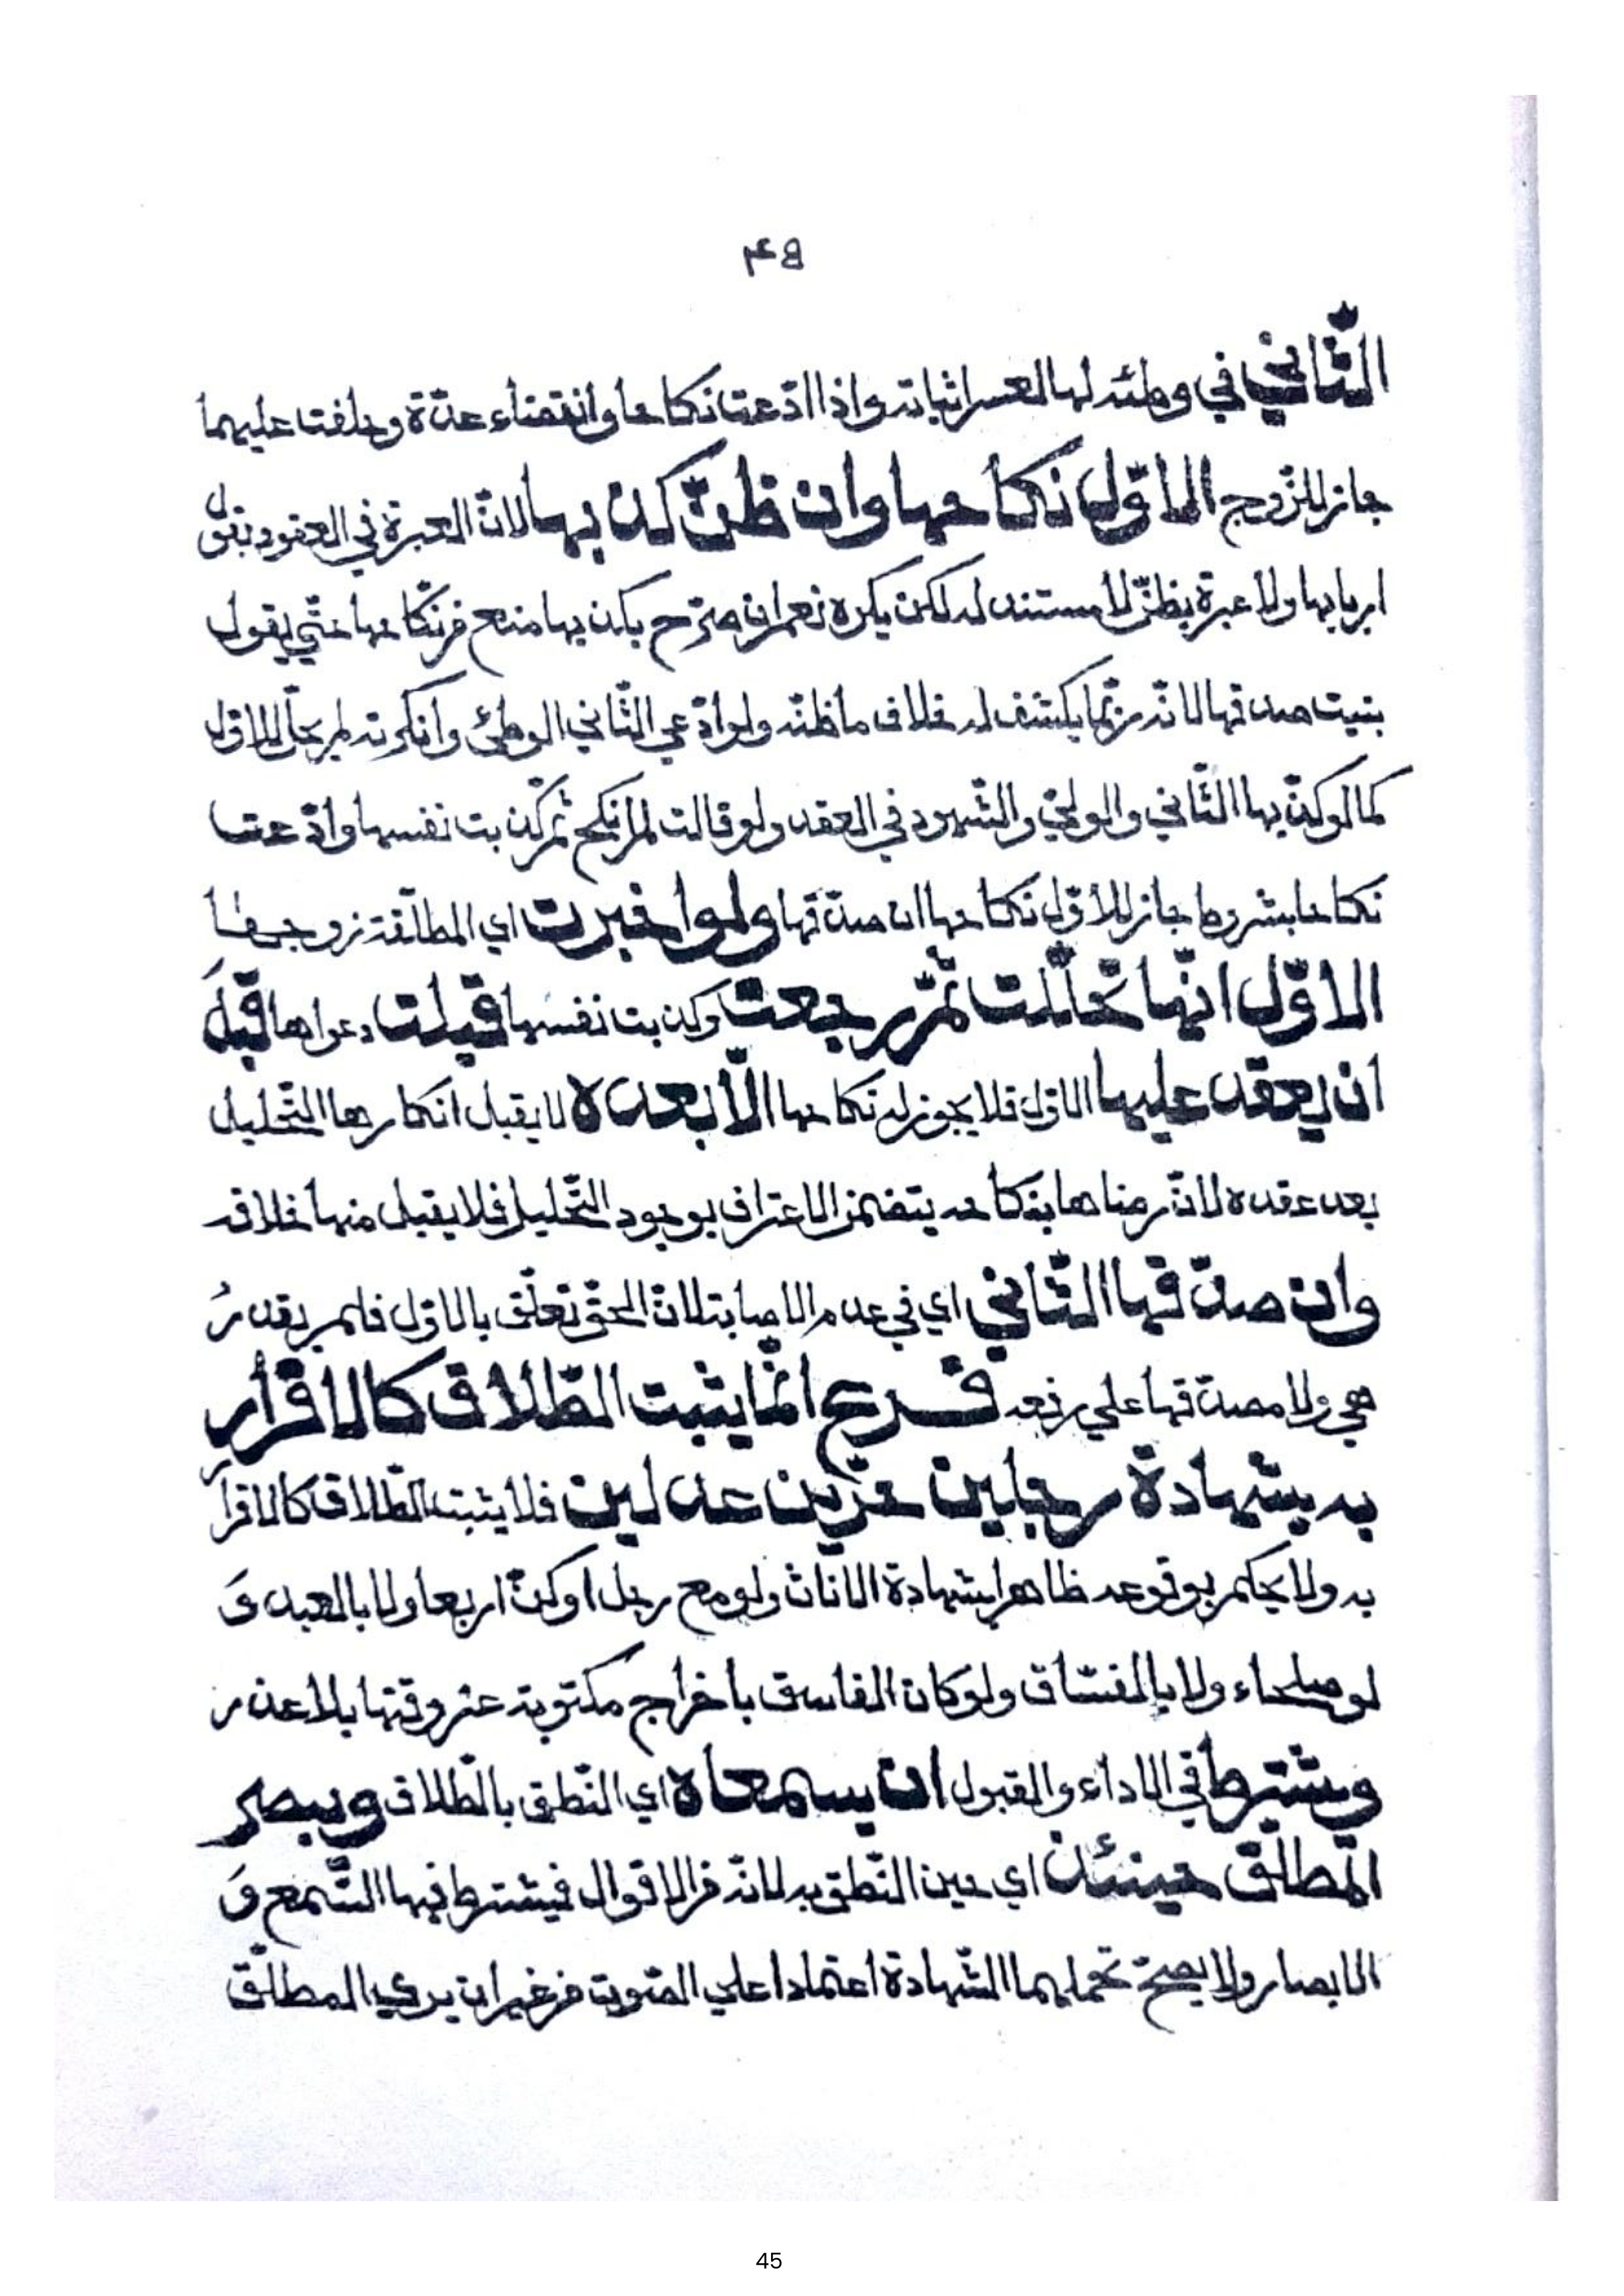 ٤٥
الثّاني في وطئه لها لعسر اثباته واذا ادّعت نكاحا وانقضاء عدّة وحلفت عليهما
جاز للزّوج الاوّل نكاحها وان ظنّ كذبها لانّ العبرة في العقود بقول
اربابها ولا عبرة بظنّ لا مستند له لكن يكره نعم ان صرّح بكذبها منع من نكاحها حتّي يقول
تبيّنت صدقها لانّه ربّما يكشف له خلاف ما ظنّه ولو ادّعي الثّاني الوطئ وانكرته لم يحلّ للاوّل
كما لو كذّبها الثّاني والوليّ والشّهود في العقد ولو قالت لم انكح ثمّ كذبت نفسها وادّعت
نكاحا بشروطه جاز للأوّل نكاحها ان صدّقها ولو اخبرت اي المطلّقة زوجها
الاوّل انّها تحلّلت ثمّ رجعت وكذبت نفسها قبلت دعواها قبلَ
ان يعقد عليها الاوّل فلا يجوز له نكاحها الّا بعده لا يقبل انكارها التّحليل
بعد عقده لانّ رضاها بنكاحه يتضمّن الاعتراف بوجود التّحليل فلا يقبل منها خلافه
وان صدّقها الثّاني اي في عدم الاصابة لانّ الحقّ تعلّق بالاوّل فلم يقدرُ
هي ولا مصدّقها علي رفعه فرع انّما يثبت الطّلاق كالاقرار
به بشهادة رجلين حرّين عدلين فلا يثبت الطّلاق كالاقرار
به ولا يحكم بوقوعه ظاهرا بشهادة الاناث ولو مع رجل او كنّ اربعا ولا بالعبد وَ
لو صلحاء ولا بالفسّاق ولو كان الفاسق باخراج مكتوبة عن وقتها بلا عذر
ويشترط في الاداء والقبول ان يسمعاه اي النّطق بالطّلاق ويبصر
المطلّق حينئذ اي حين النّطق به لانّه من الاقوال فيشترط فيها السّمع وَ
الابصار ولا يصحّ تحمّلهما الشّهادة اعتمادا علي الصّوت من غير ان يري المطلّق
45